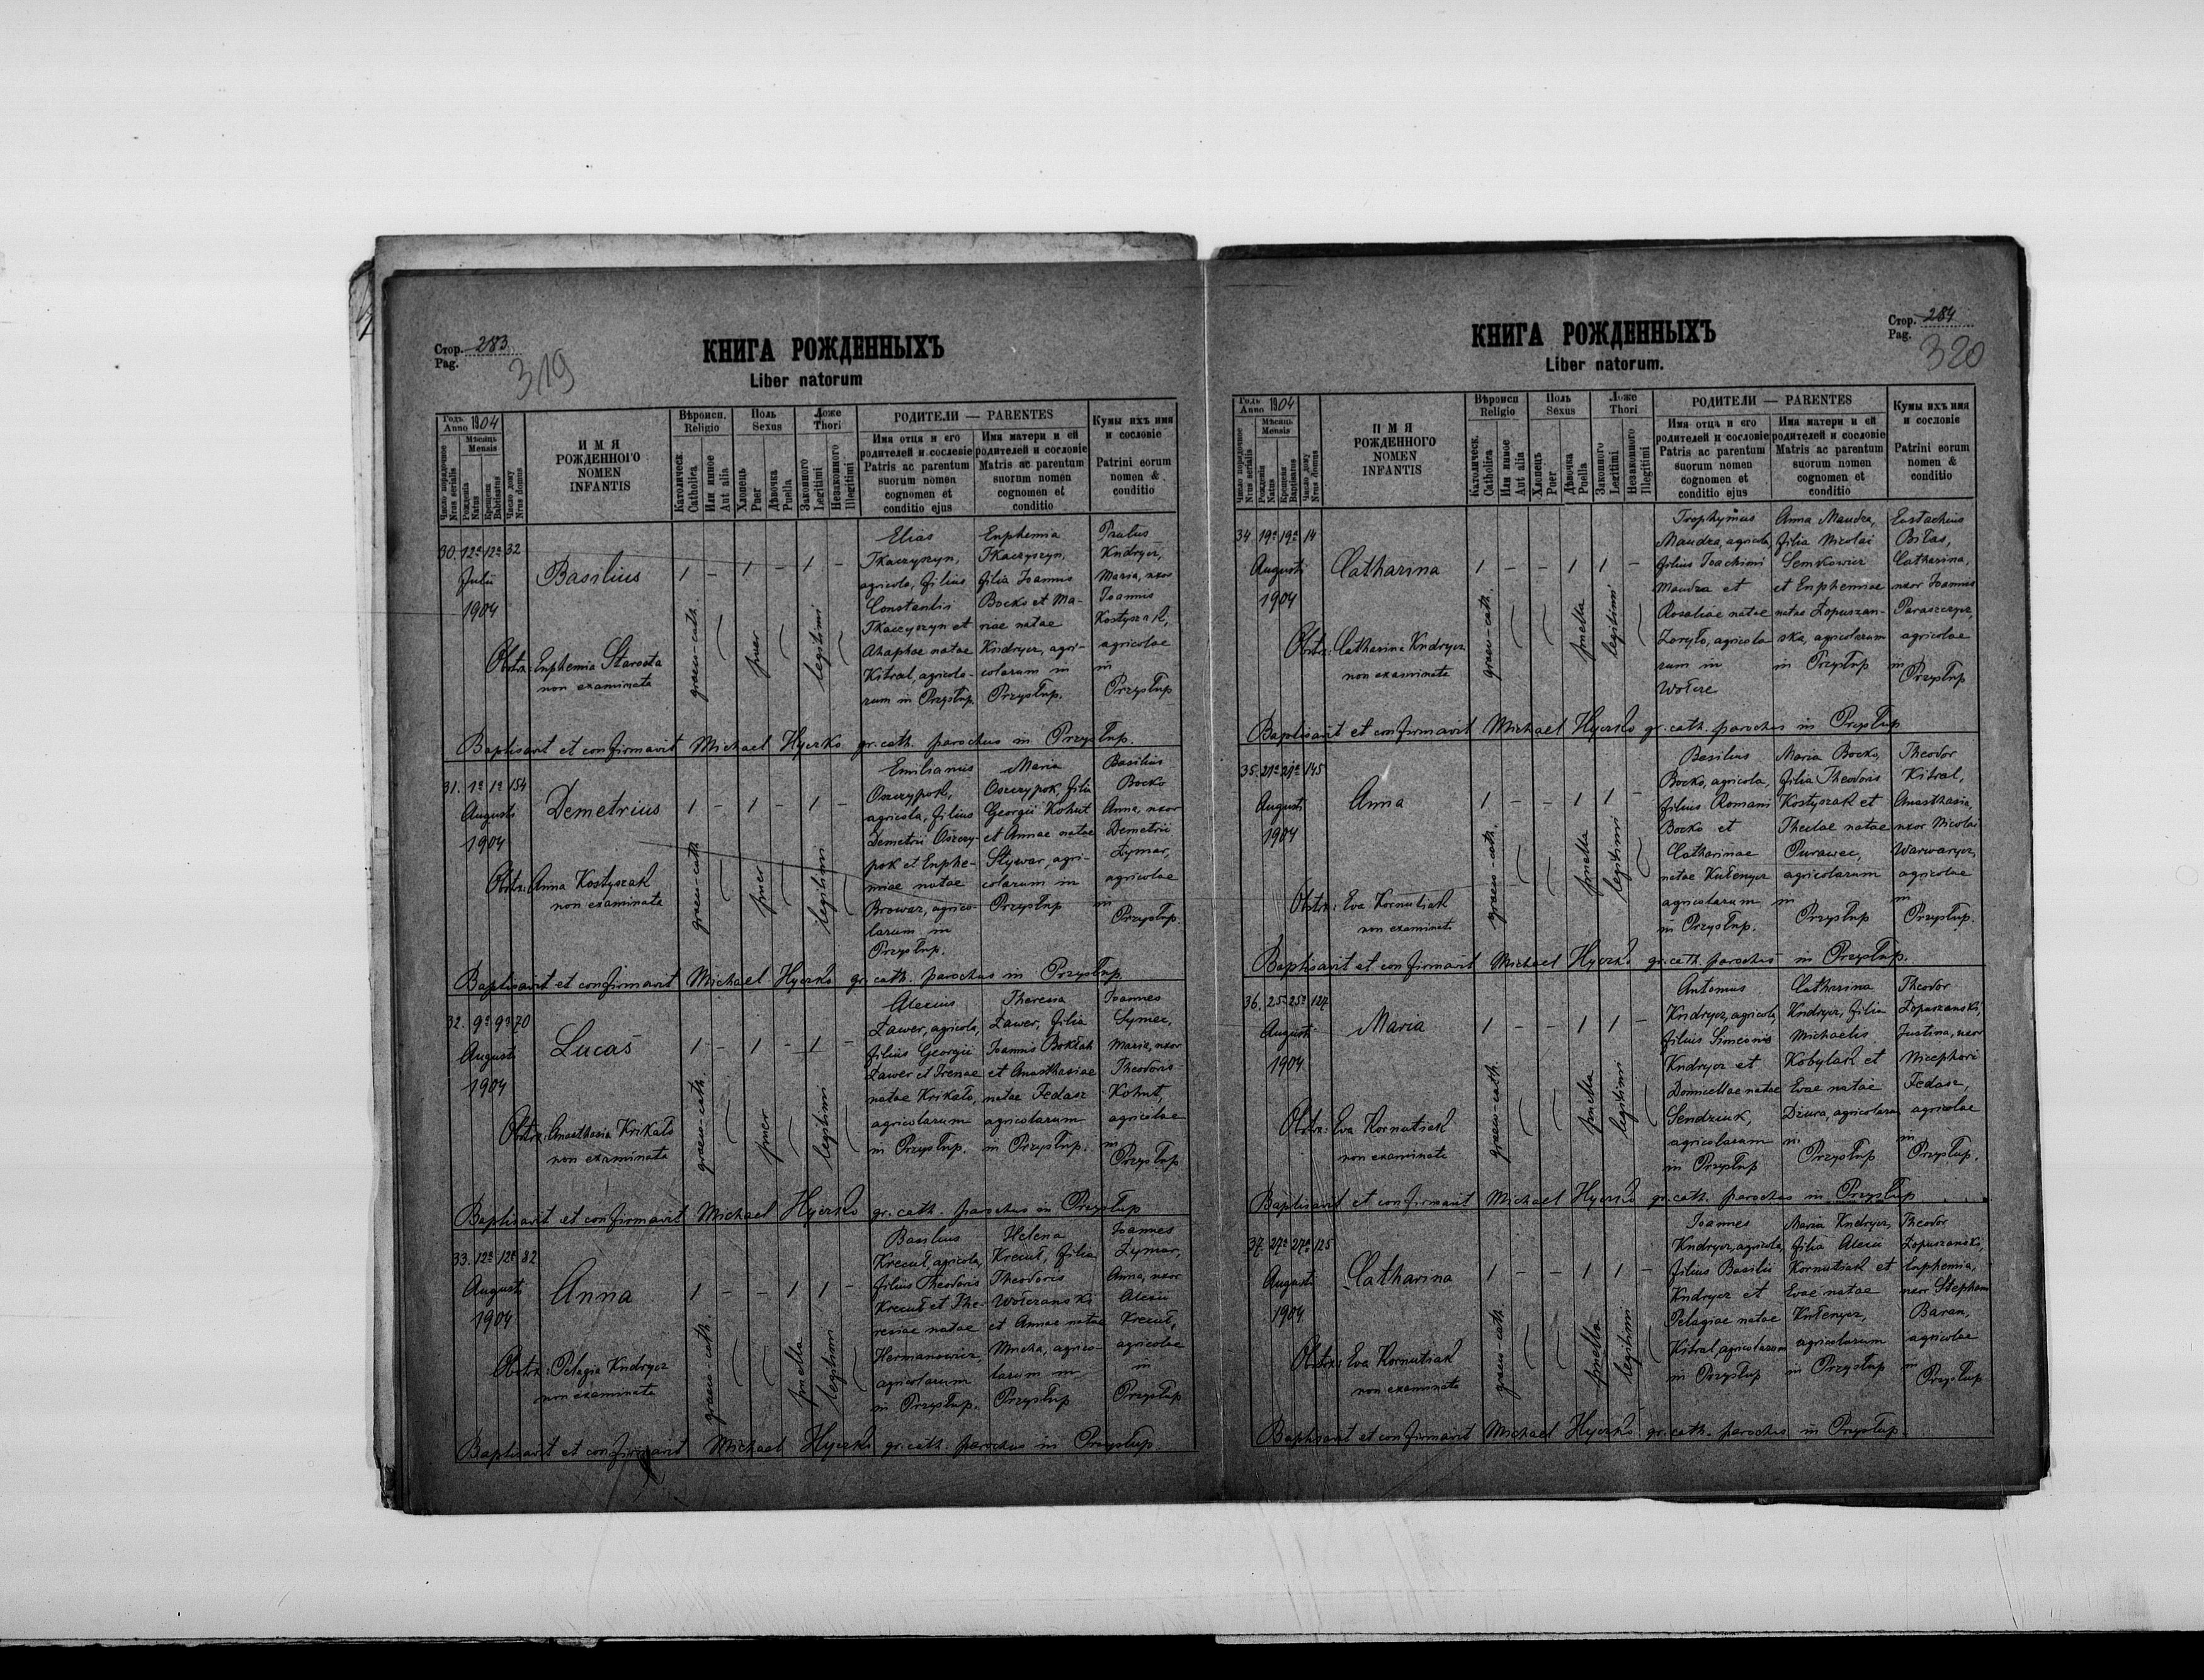 Стор. 283
Pag.
319
КНИГА РОЖДЕННЫХЪ
Liber natorum
Годъ Anno 1904
Мѣсяць Mensis
Число порядочное Nrus serialis
Рожденія Natus
Крещенія Babtisatus
Число дому Nrus domus
ИМЯ РОЖДЕННОГО NOMEN INFANTIS
Вѣроисп. Religio
Католическ. Catholica
Или инное Aut alia
Поль Sexus
Хлопець Puer
Дѣвочка Puella
Ложе Thori
Законного Legitimi
Незаконного Illegitimi
РОДИТЕЛИ — PARENTES
Имя отца и его родителей и сословіе Patris ac parentum suorum nomen cognomen et conditio ejus
Имя матери и ей родителей и сословіе Matris ac parentum suorum nomen cognomen et conditio
Кумы ихъ имя и сословіе Patrini eorum nomen & conditio
30. 12a 12a 32
Julii
1904
Basilius
1 – 1 – 1 –
graeco-cath.
puer
legitimi
Obstr: Euphemia Starosta
non examinata
Elias
Tkaczyszyn,
agricola, filius
Constantii
Tkaczyszyn et
Ahaphae natae
Kitral, agricola-
rum in Przysłup
Euphemia
Tkaczyszyn,
filia Joannis
Bocko et Ma-
riae natae
Kndrycz, agri-
colarum in
Przysłup.
Kndrycz,
Maria, uxor
Joannis
Kostyszak,
agricolae
in
Przysłup
Baptisavit et confirmavit Michael Hyczko gr. cath. parochus in Przysłup.
31. 1a 1a 154
Augusti
1904
Demetrius
1 – 1 – 1 –
graeco-cath
puer
legitimi
Obstr: Anna Kostyszak
non examinata
Emilianus
Oszczypok,
agricola, filius
Demetrii Oszczy-
pok et Euphe-
miae natae
Browar, agrico-
larum in
Przysłup.
Maria
Oszczypok, filia
Georgii Kohut
et Annae natae
Stywar, agri-
colarum in
Przysłup
Basilius
Bocko
Anna, uxor
Demetrii
Zymar,
agricolae
in
Przysłup.
Baptisavit et confirmavit Michael Hyczko gr. cath. parochus in Przysłup
32. 9a 9a 70
Augusti
1904
Lucas
1 – 1 – 1 –
graeco-cath.
puer
legitimi
Obstr: Anasthasia Krikało
non examinata
Alexius
Ławer, agricola,
filius Georgii
Ławer et Irenae
natae Krikało,
agricolarum
in Przysłup.
Theresia
Ławer, filia
Joannis Bokłah
et Anasthasiae
natae Fedasz
agricolarum
in Przysłup.
Joannes
Symec,
Maria, uxor
Theodoris
Kohut,
agricolae
in
Przysłup
Baptisavit et confirmavit Michael Hyczko gr. cath. parochus in Przysłup
33. 12a 12a 82
Augusti
1904
Anna
1 – – 1 1 –
graeco-cath
puella
legitimi
Obstr: Pelagia Kndrycz
non examinata
Basilius
Kreciuł, agricola,
filius Theodoris
Kreciuł et The-
resiae natae
Hermanowicz,
agricolarum
in Przysłup.
Helena
Kreciuł, filia
Theodoris
Wołczanski
et Annae natae
Mucha, agrico-
larum in
Przysłup
Joannes
Zymar,
Anna, uxor
Alexii
Kreciuł,
agricolae
in
Przysłup
Baptisavit et confirmavit Michael Hyczko gr. cath. parochus in Przysłup
Стор. 284
Pag.
320
КНИГА РОЖДЕННЫХЪ
Liber natorum.
Годъ Anno 1904
Мѣсяць Mensis
Число порядочное Nrus serialis
Рожденія Natus
Крещенія Baptisatus
Число дому Nrus domus
ИМЯ РОЖДЕННОГО NOMEN INFANTIS
Вѣроисп Religio
Католическ. Catholica
Или инное Aut alia
Поль Sexus
Хлопець Puer
Дѣвочка Puella
Ложе Thori
Законного Legitimi
Незаконного Illegitimi
РОДИТЕЛИ — PARENTES
Имя отца и его родителей и сословіе Patris ac parentum suorum nomen cognomen et conditio ejus
Имя матери и ей родителей и сословіе Matris ac parentum suorum nomen cognomen et conditio
Кумы ихъ имя и сословіе Patrini eorum nomen & conditio
34 19a 19a 14
Augusti
1904
Catharina
1 – – 1 1 –
graeco-cath.
puella
legitimi
Obstr: Catharina Kndrycz
non examinata
Trophymus
Maudza, agricola,
filius Joachimi
Maudza et
Rosaliae natae
Zoryło, agricola
rum in
Wołcze
Anna Maudza,
filia Nicolai
Semkowicz
et Euphemiae
natae Łopuszan-
ska, agricolarum
in Przysłup
Eustachius
Biłas,
Catharina,
uxor Joannis
Paraszczycz,
agricolae
in
Przysłup
Baptisavit et confirmavit Michael Hyczko gr. cath. parochus in Przysłup
35. 21a 21a 145
Augusti
1904
Anna
1 – – 1 1 –
graeco-cath.
puella
legitimi
Obstr: Eva Kornutiak
non examinata
Basilius
Bocko, agricola,
filius Romani
Bocko et
Catharinae
natae Kułenycz
agricolarum
in Przysłup.
Maria Bocko,
filia Theodoris
Kostyszak et
Theclae natae
Purawec,
agricolarum
in
Przysłup
Theodor
Kitral,
Anasthasia,
uxor Nicolai
Warwarycz,
agricolae
in
Przysłup.
Baptisavit et confirmavit Michael Hyczko gr. cath. parochus in Przysłup.
36. 25a 25a 127
Augusti
1904
Maria
1 – – 1 1 –
graeco-cath.
puella
legitimi
Obstr: Eva Kornutiak
non examinata
Antonius
Kndrycz, agricola,
filius Simeonis
Kndrycz et
Domicellae natae
Sendziuk,
agricolarum
in Przysłup
Catharina
Kndrycz, filia
Michaelis
Kobylak et
Evae natae
Dzura, agricolarum
in
Przysłup
Theodor
Łopuszanski,
Justina, uxor
Nicephori
Fedasz,
agricolae
in
Przysłup.
Baptisavit et confirmavit Michael Hyczko gr. cath. parochus in Przysłup
37. 27a 27a 125
Augusti
1904
Catharina
1 – – 1 1 –
graeco-cath.
puella
legitimi
Obstr: Eva Kornutiak
non examinata
Joannes
Kndrycz, agricola,
filius Basilii
Kndrycz et
Pelagiae natae
Kitral, agricolarum
in Przysłup
Maria Kndrycz,
filia Alexii
Kornutiak et
Evae natae
Kułenycz,
agricolarum
in Przysłup
Theodor
Łopuszanski,
Euphemia,
uxor Stephani
Baran,
agricolae
in
Przysłup
Baptisavit et confirmavit Michael Hyczko gr. cath. parochus in Przysłup.